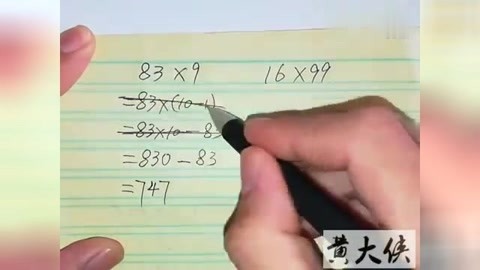 83×9 16×99
=83×(10-1)
=83×10-83
=830-83
=747
黄大侠